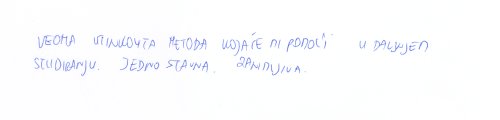 VEOMA UČINKOVITA METODA KOJA ĆE MI POMOĆI U DALJNJEM
STUDIRANJU. JEDNOSTAVNA. ZANIMLJIVA.